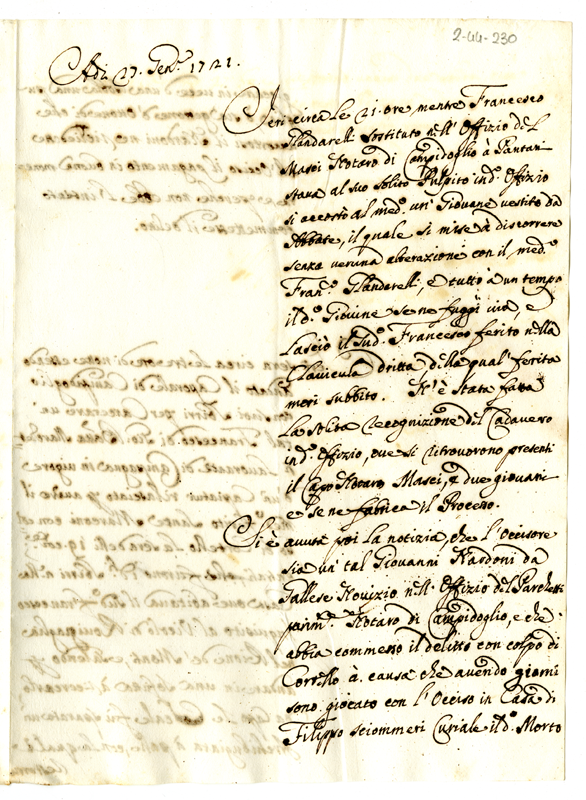 2-44-230
Adi 27. Gen.º 1721.
Jeri circa le 21. ore mentre Francesco
Glandarelli sostituto nell' Offizio del
Masei Notaro di Campidoglio à Pantani
stava al suo solito Pulpito in d.º Offizio
si accostò al med.º un' Giovane vestito da
Abbate, il quale si mise à discorrere
senza veruna alterazione con il med.º
Fran.º Glandarelli, e tutto à un tempo
il d.º Giovine se ne fuggì via, e
Lasciò il sud.º Francesco ferito nella
Clavicula dritta della qual' ferita
morì subbito. N' è stata fatta
La solita recognizione del Cadavero
in d.º Offizio, ove si ritrovorono presenti
il Capo Notaro Masei, e due giovani
e se ne fabrica il Processo.
Si è avuta poi la notizia, che l'Occisore
sia un' tal Giovanni Nardoni da
Fallese Novizio nell' Offizio del Parchetti
parim.te Notaro di Campidoglio, e che
abbia commesso il delitto con colpo di
Cortello à causa che avendo giorni
sono giocato con l'Occiso in Casa di
Filippo sciommeri Curiale il d.º Morto